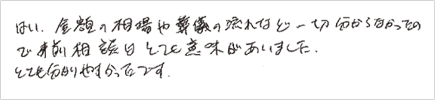 はい、金額の相場や葬儀の流れなど一切分からなかったの
で事前相談はとても意味がありました。
とても分かりやすかったです。